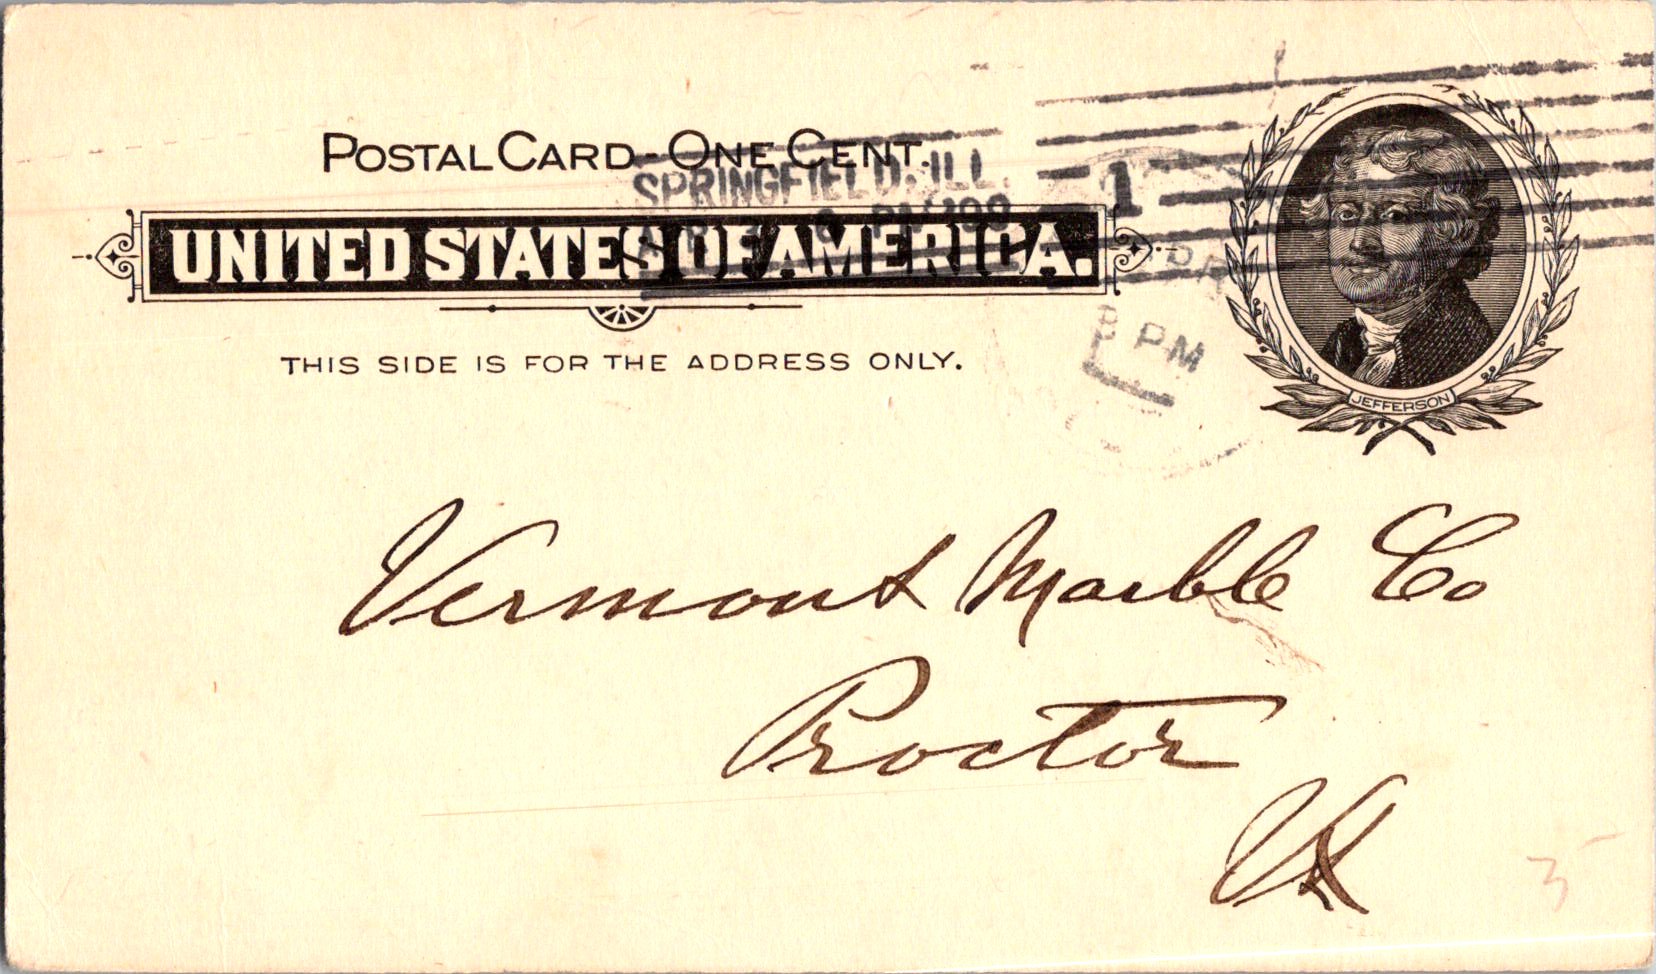 POSTAL CARD - ONE CENT.
SPRINGFIELD. ILL.
8 PM '98
1
UNITED STATES OF AMERICA.
8 PM
THIS SIDE IS FOR THE ADDRESS ONLY.
JEFFERSON
Vermont Marble Co
Proctor
Vt
3